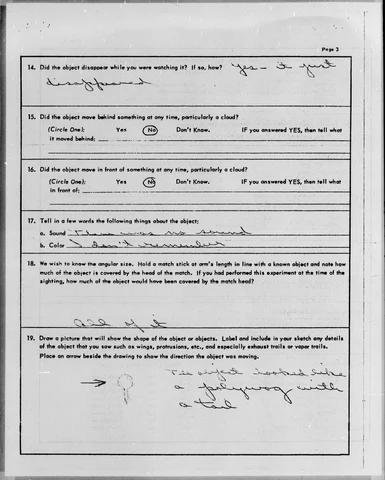 Page 3
14. Did the object disappear while you were watching it? If so, how? Yes - it just
disappeared
15. Did the object move behind something at any time, particularly a cloud?
(Circle One): Yes No Don't Know. IF you answered YES, then tell what
it moved behind:
16. Did the object move in front of something at any time, particularly a cloud?
(Circle One): Yes No Don't Know. IF you answered YES, then tell what
in front of:
17. Tell in a few words the following things about the object:
a. Sound There was no sound
b. Color I don't remember
18. We wish to know the angular size. Hold a match stick at arm's length in line with a known object and note how
much of the object is covered by the head of the match. If you had performed this experiment at the time of the
sighting, how much of the object would have been covered by the match head?
All of it
19. Draw a picture that will show the shape of the object or objects. Label and include in your sketch any details
of the object that you saw such as wings, protrusions, etc., and especially exhaust trails or vapor trails.
Place an arrow beside the drawing to show the direction the object was moving.
The object looked like
a polywog with
a tail